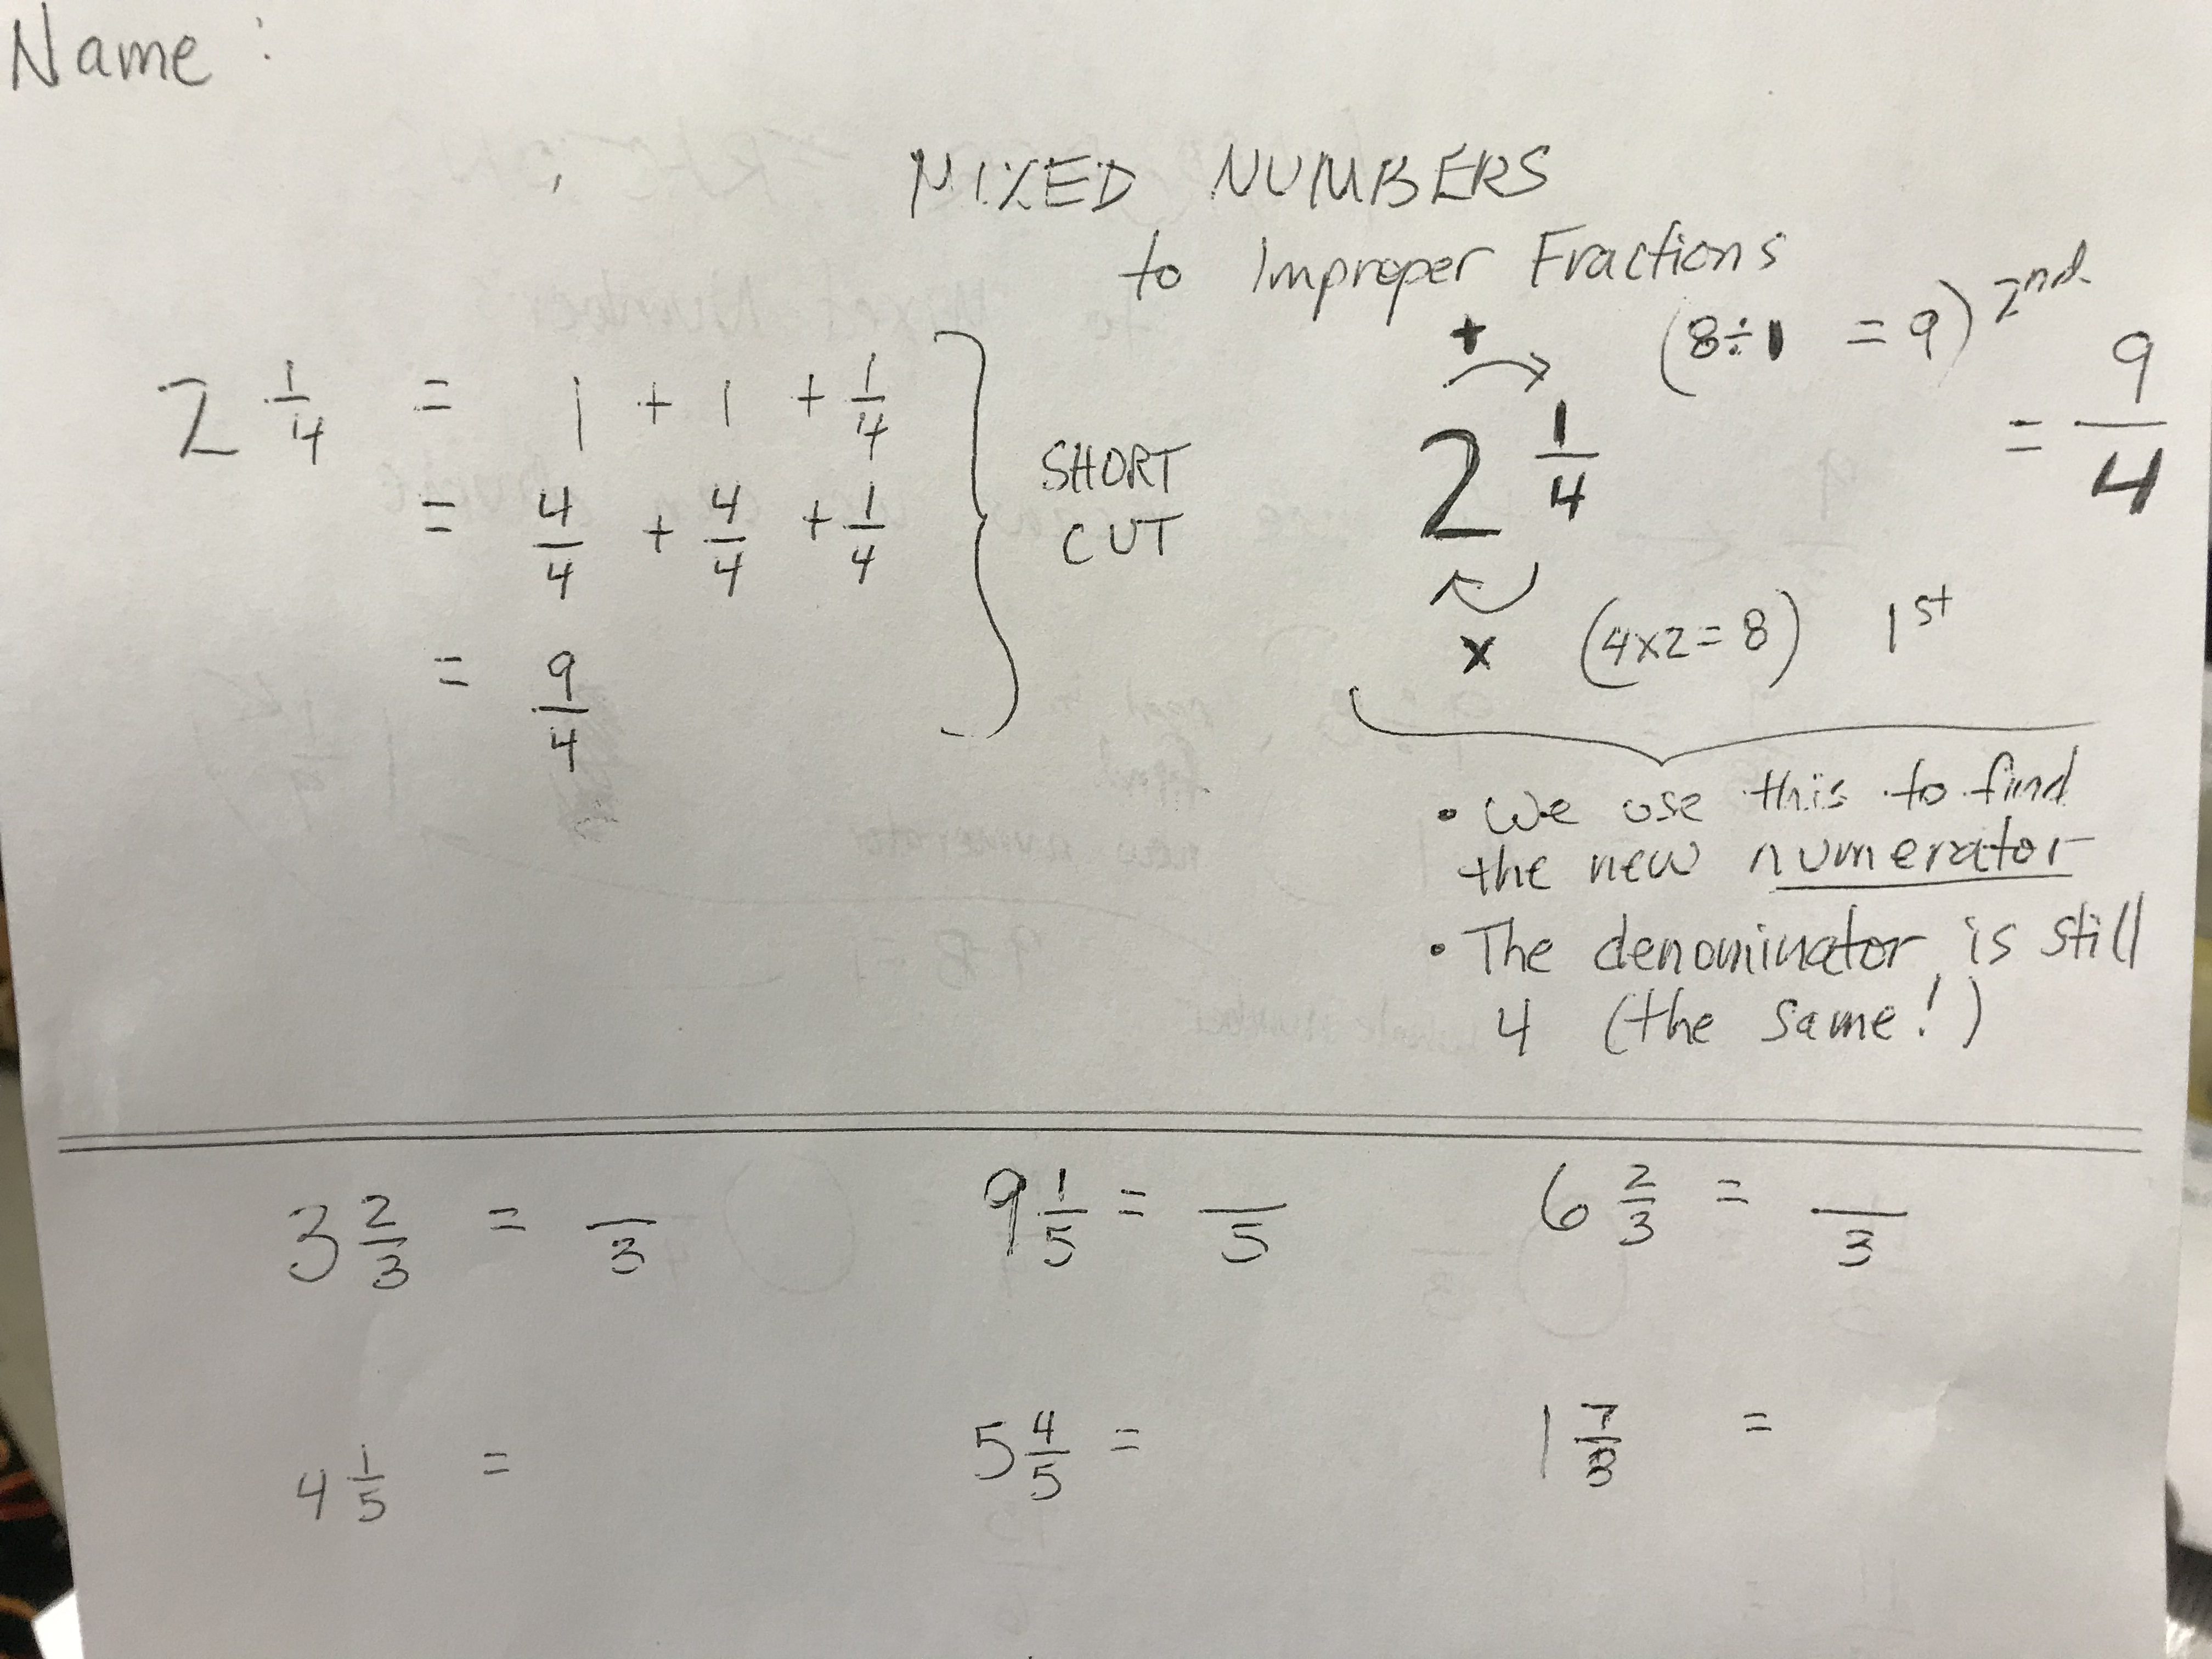 Name :
MIXED NUMBERS
to Improper Fractions
2 1/4 = 1 + 1 + 1/4
= 4/4 + 4/4 + 1/4
= 9/4
SHORT
CUT
+ (8÷1 = 9) 2nd
2 1/4 = 9/4
x (4x2=8) 1st
• We use this to find
the new numerator
• The denominator is still
4 (the same!)
3 2/3 = /3 9 1/5 = /5 6 2/3 = /3
4 1/5 = 5 4/5 = 1 7/8 =